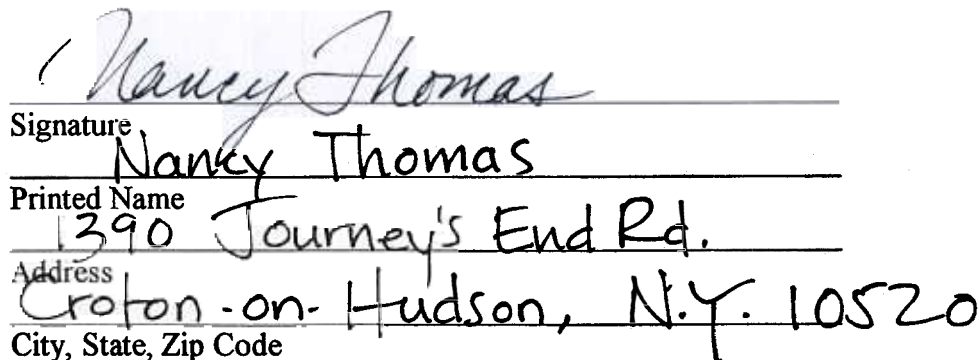 Nancy Thomas
Signature
Nancy Thomas
Printed Name
1390 Journey's End Rd.
Address
Croton-on-Hudson, N.Y. 10520
City, State, Zip Code